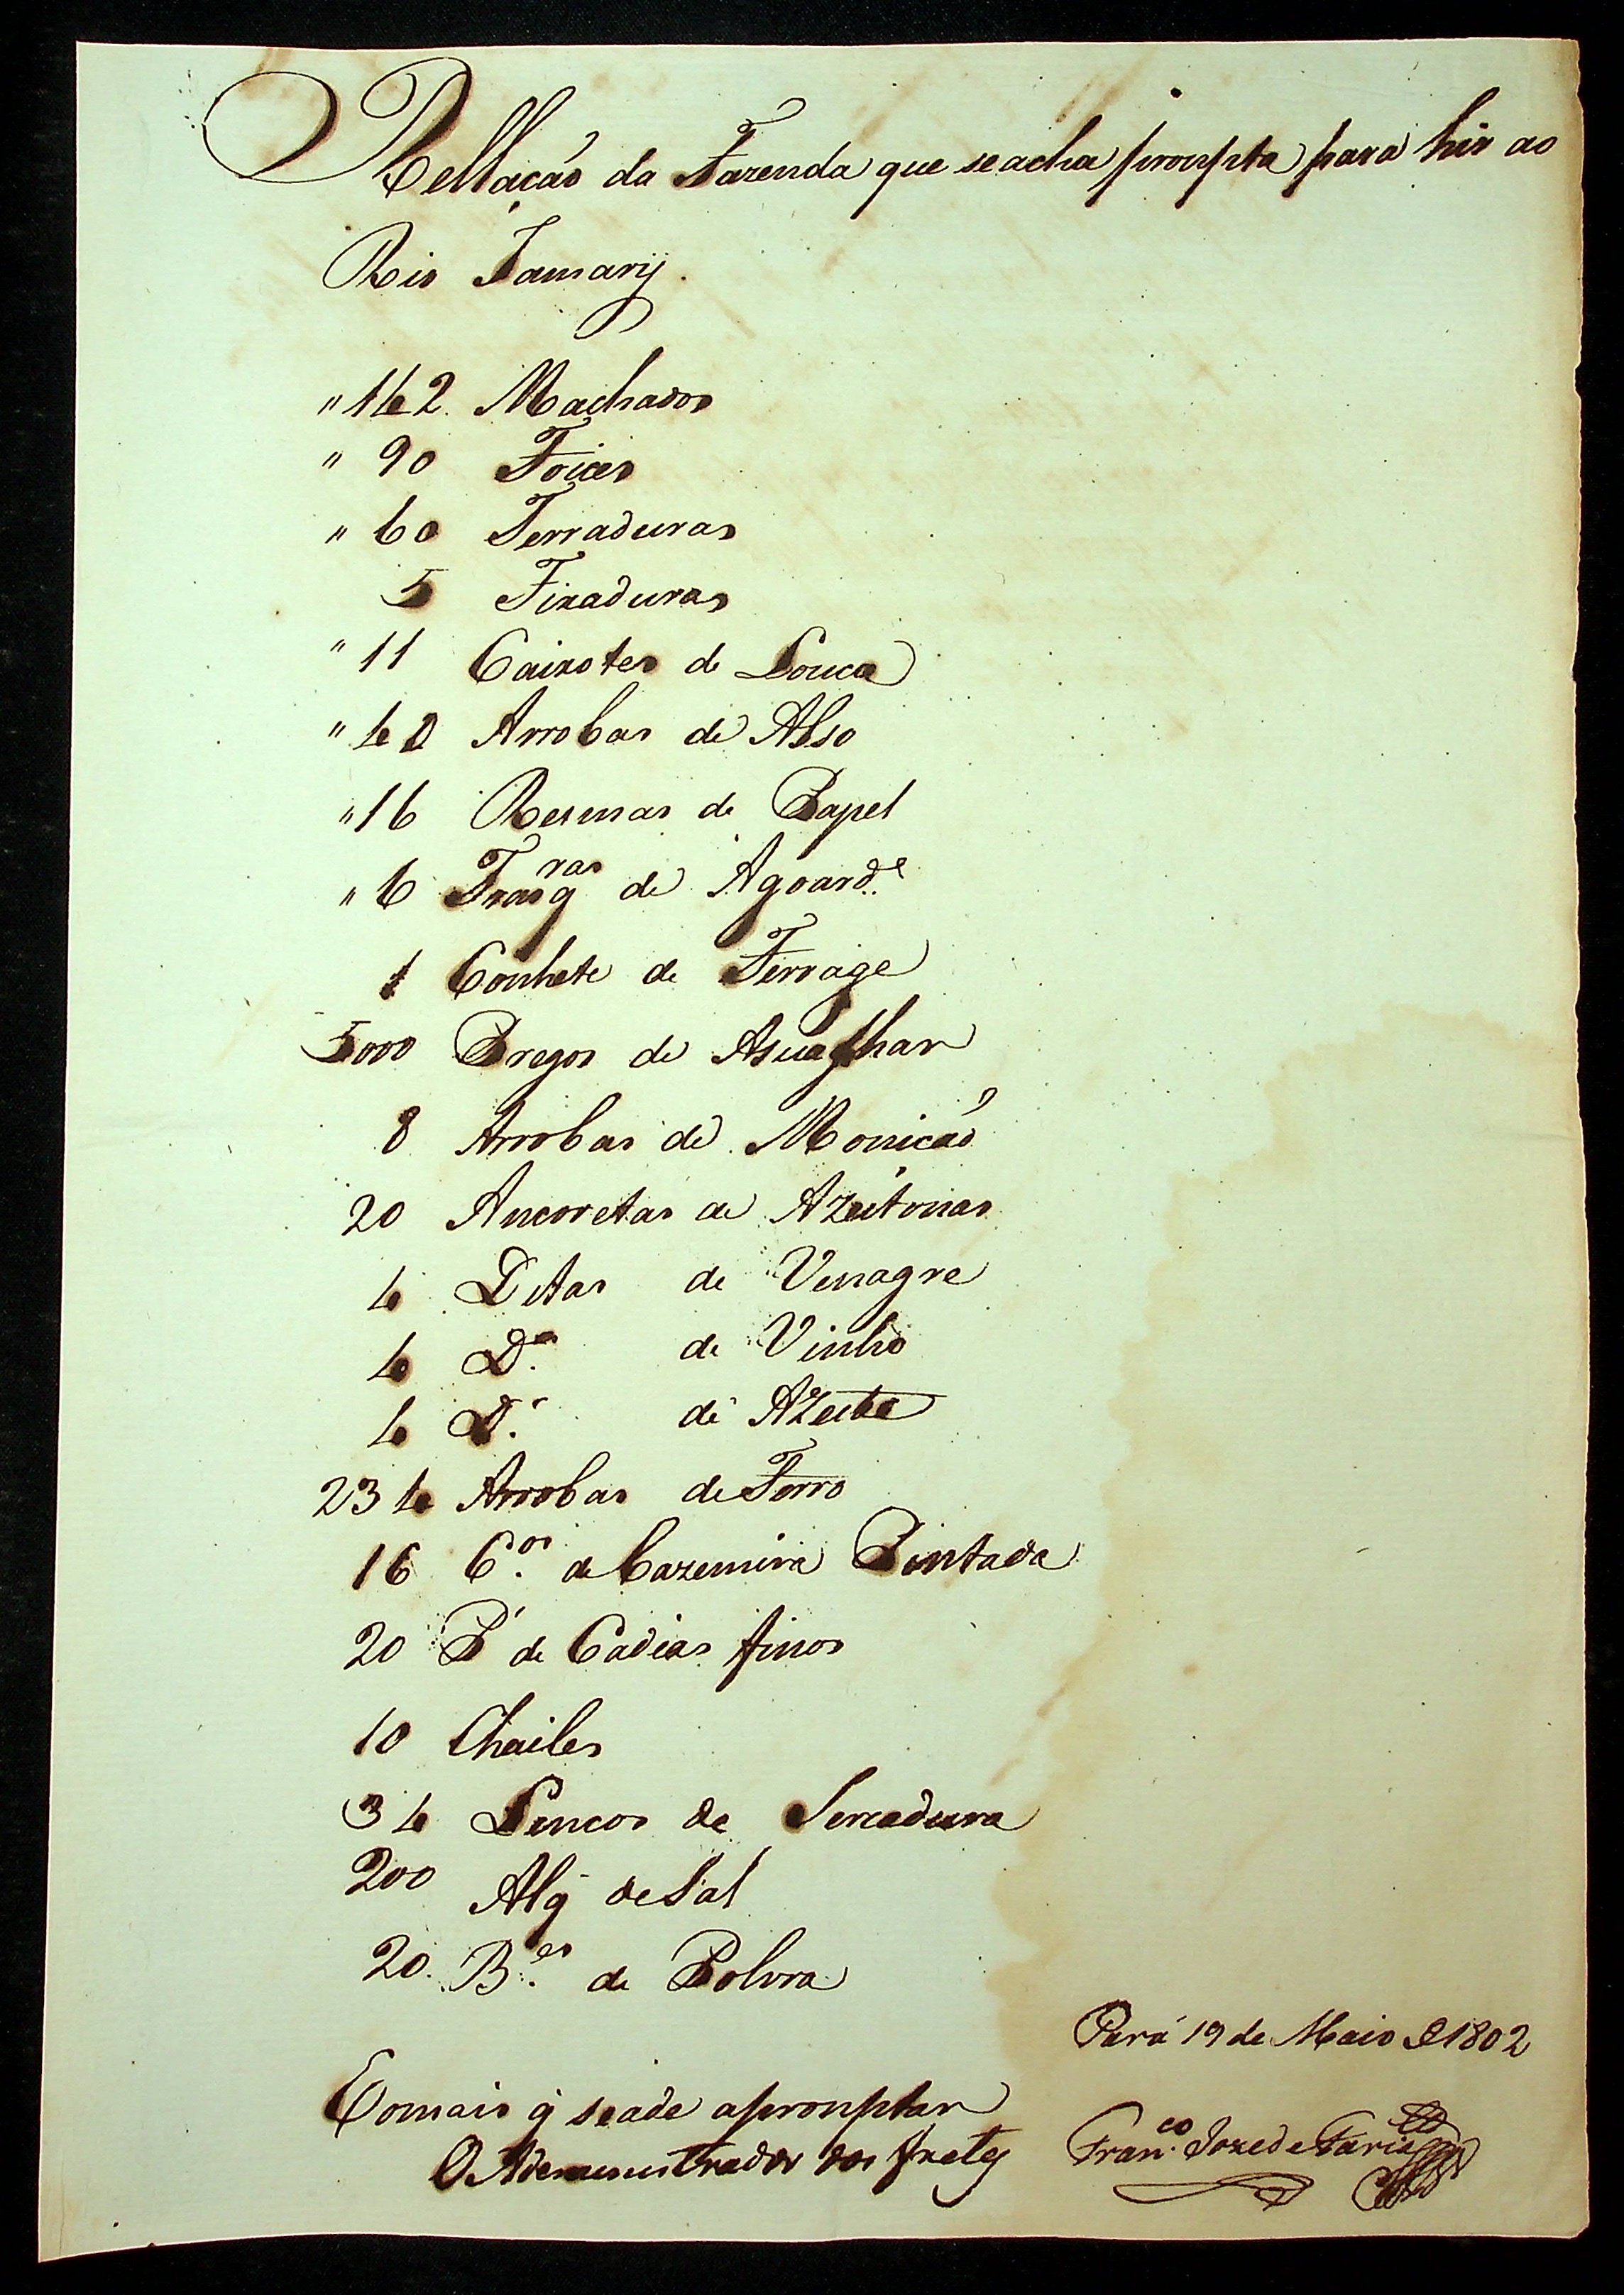 Rellação da Fazenda que se acha prompta para hir ao
Rio Jamary.
" 142 Machados
" 90 Foices
" 60 Ferraduras
5 Fixaduras
" 11 Caixotes de Louca
" 40 Arrobas de Asso
" 16 Resmas de Papel
" 6 Frasq.ras de Agoard.e
1 Conhete de Ferrage
5000 Pregos de
8 Arrobas de Monicaó
20 Ancoretas de Azeitonas
4 Ditas de Venagre
4 D.as de Vinho
4 D.as de Azeite
234 Arrobas de Ferro
16 C.os de Cazemira Pintada
20 P.s de Cadias finos
10 Chailes
34 Lencos de Sercadura
200 Alq. de Sal
20 B.es de Polvra
Pará 19 de Maio de 1802
E o mais q̃ se ade apromptar
OAdemenistrador dos fretes Fran.co Joze de Faria